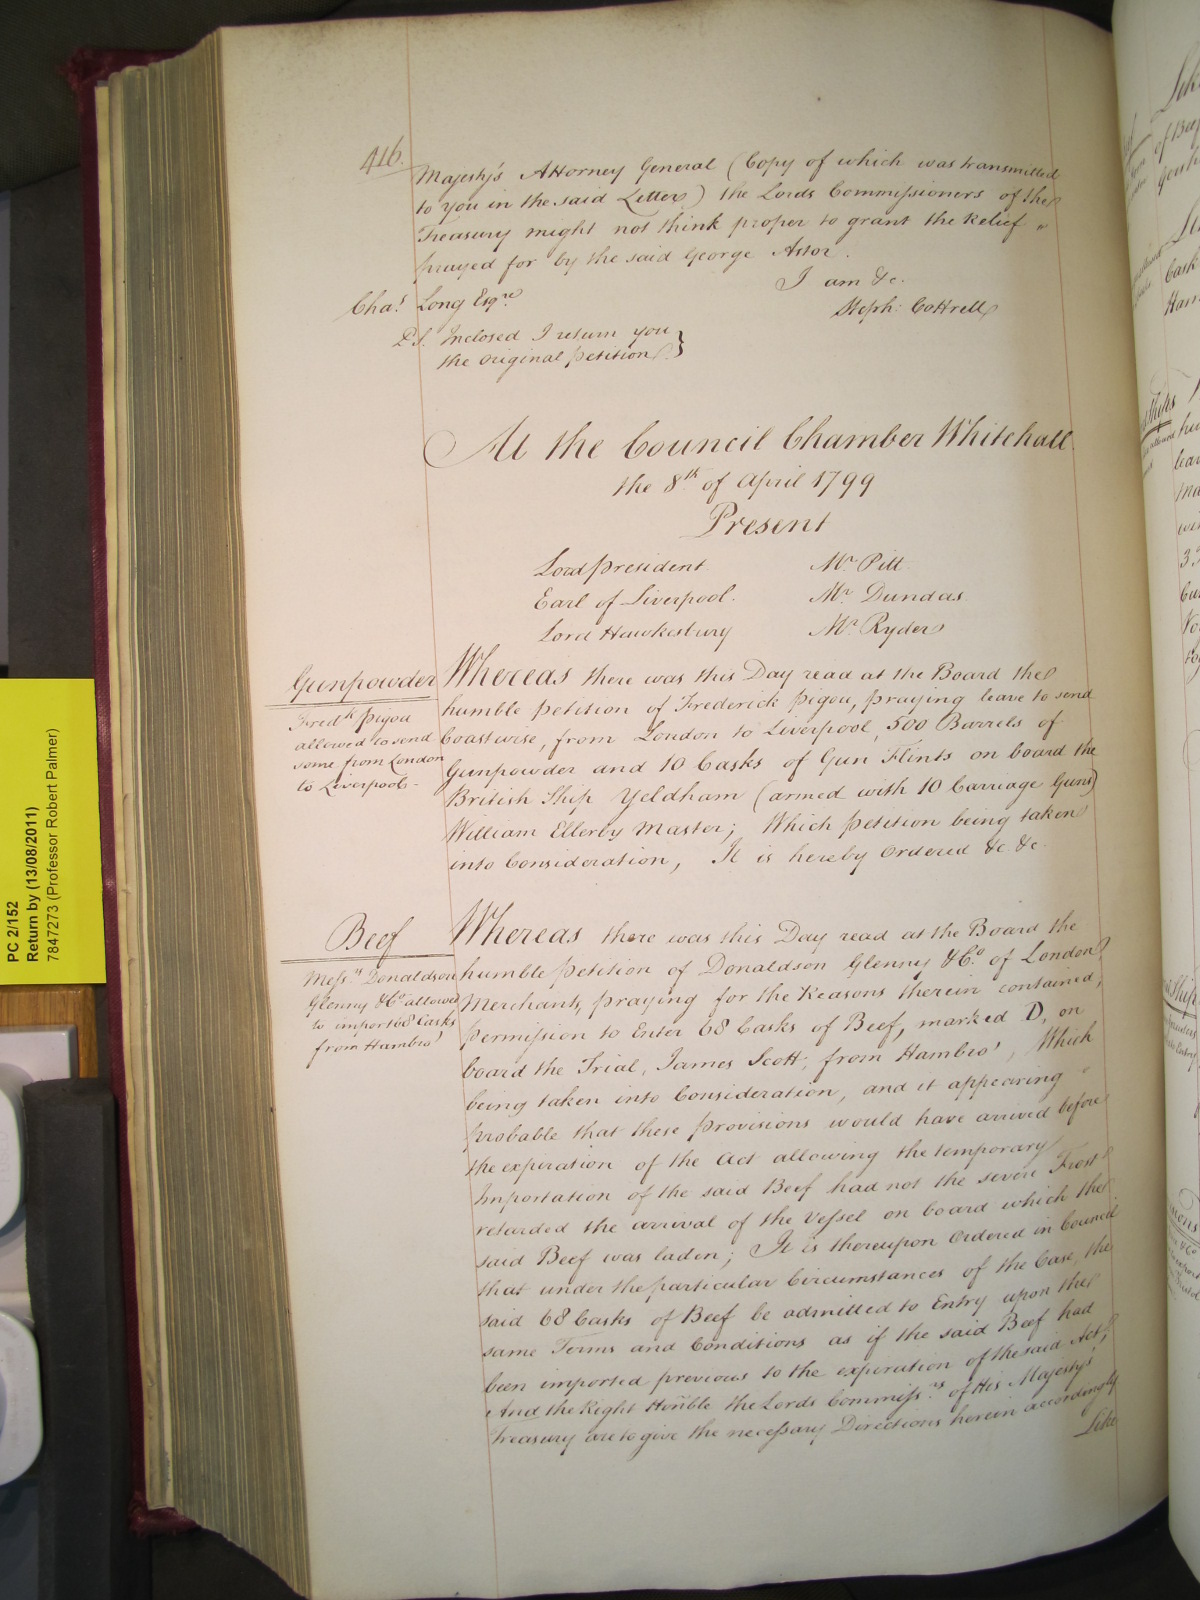 416.
Majesty's Attorney General (Copy of which was transmitted
to you in the said Letter) the Lords Commissioners of the
Treasury might not think proper to grant the Relief "
prayed for by the said George Astor.
I am &c.
Chas. Long Esqre
Steph: Cottrell
P.S. Inclosed I return you
the Original Petition.}
At the Council Chamber Whitehall
the 8th of April 1799
Present
Lord President Mr Pitt
Earl of Liverpool. Mr. Dundas
Lord Hawkesbury Mr. Ryder
Gunpowder
Fredk Pigou
allowed to send
some from London
to Liverpool -
Whereas there was this Day read at the Board the
humble Petition of Frederick Pigou, praying leave to send
Coastwise, from London to Liverpool, 500 Barrels of
Gunpowder and 10 Casks of Gun Flints on board the
British Ship Yeldham (armed with 10 Carriage Guns)
William Ellerby Master; Which Petition being taken
into Consideration, It is hereby Ordered &c. &c.
Beef
Messrs Donaldson
Glenny & Co allowed
to import 68 Casks
from Hambro'
Whereas there was this Day read at the Board the
humble Petition of Donaldson Glenny & Co. of London
Merchants, praying for the Reasons therein contained,
Permission to Enter 68 Casks of Beef, marked D, on
board the Trial, James Scott; from Hambro', Which
being taken into Consideration, and it appearing "
probable that these Provisions would have arrived before
the expiration of the Act allowing the temporary
Importation of the said Beef had not the severe Frost
retarded the arrival of the Vessel on board which the
said Beef was laden; It is thereupon Ordered in Council
that under the particular Circumstances of the Case, the
said 68 Casks of Beef be admitted to Entry upon the
same Terms and Conditions as if the said Beef had
been imported previous to the expiration of the said Act;
And the Right Honble the Lords Commissrs of His Majesty's
Treasury are to give the necessary Directions herein accordingly
Like
PC 2/152
Return by (13/08/2011)
7847273 (Professor Robert Palmer)